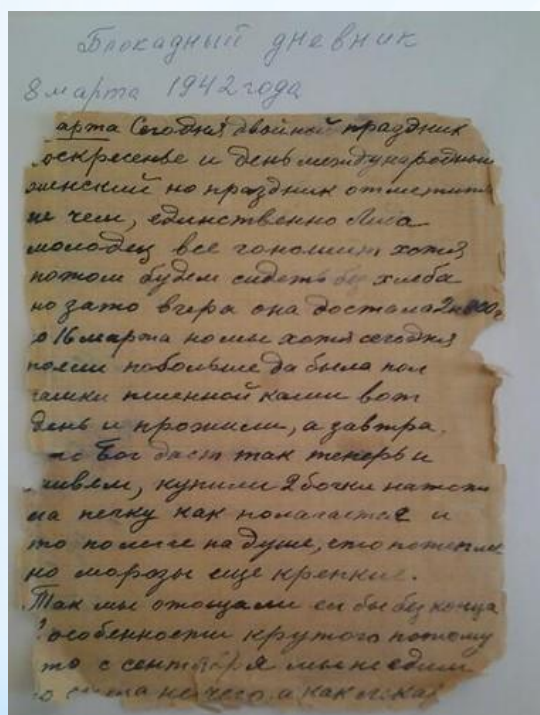 Блокадный дневник
8 марта 1942 года
арта Сегодня двойной праздник
оскресенье и день международный
женский но праздник отметить
не чем, единственно Лида
молодец все гоношит хотя
потом будем сидеть без хлеба
но зато вчера она достала 2 н
о 16 марта но мы хотя сегодня
поели побольше да была пол
пшенной каши вот
день и прожили, а завтра
Бог даст так теперь и
живем, купили 2 бочки
ла печку как полагается и
то полегче на душе, это потеплее
но морозы еще крепкие.
Так мы отощали ел бы без конца
особенности крутого потому
то с сентября мы не едим
о сыта нечего а как